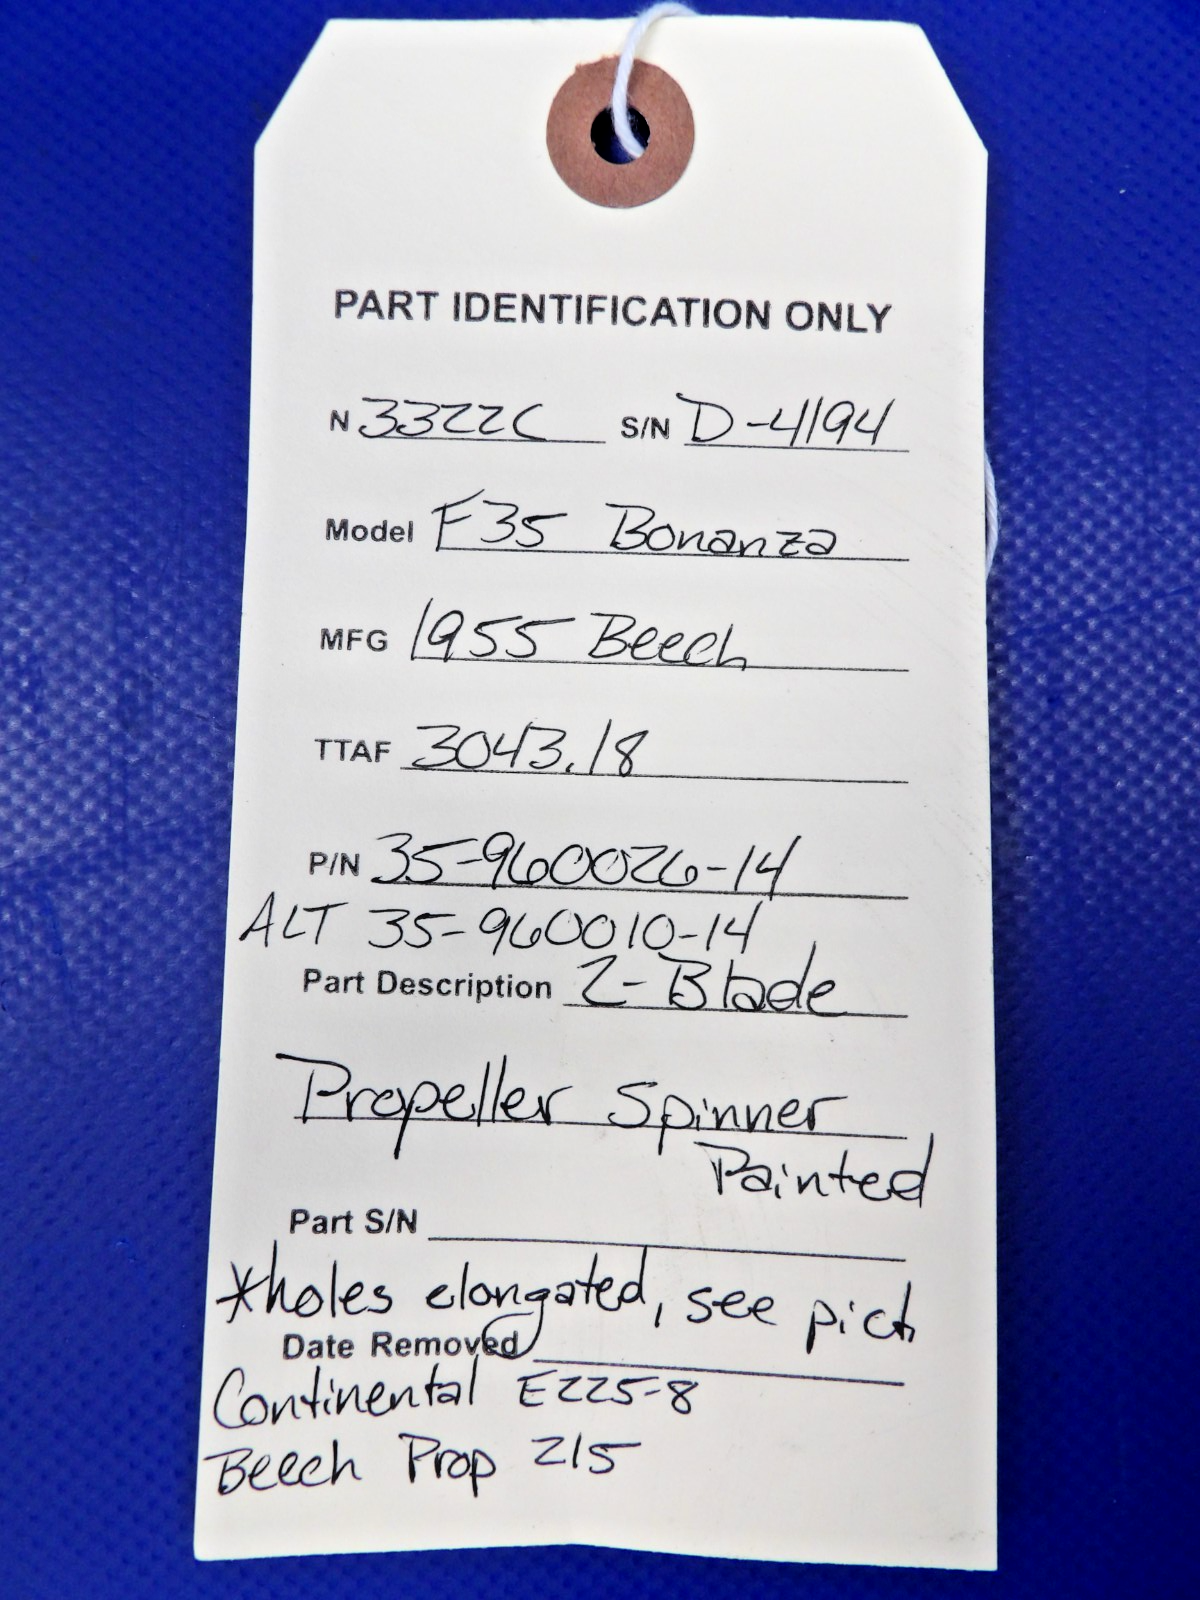 PART IDENTIFICATION ONLY
N 3322C S/N D-4194
Model F35 Bonanza
MFG 1955 Beech
TTAF 3043.18
P/N 35-960026-14
ALT 35-960010-14
Part Description 2-Blade
Propeller Spinner
Painted
Part S/N
*holes elongated, see pict
Date Removed
Continental E225-8
Beech Prop 215